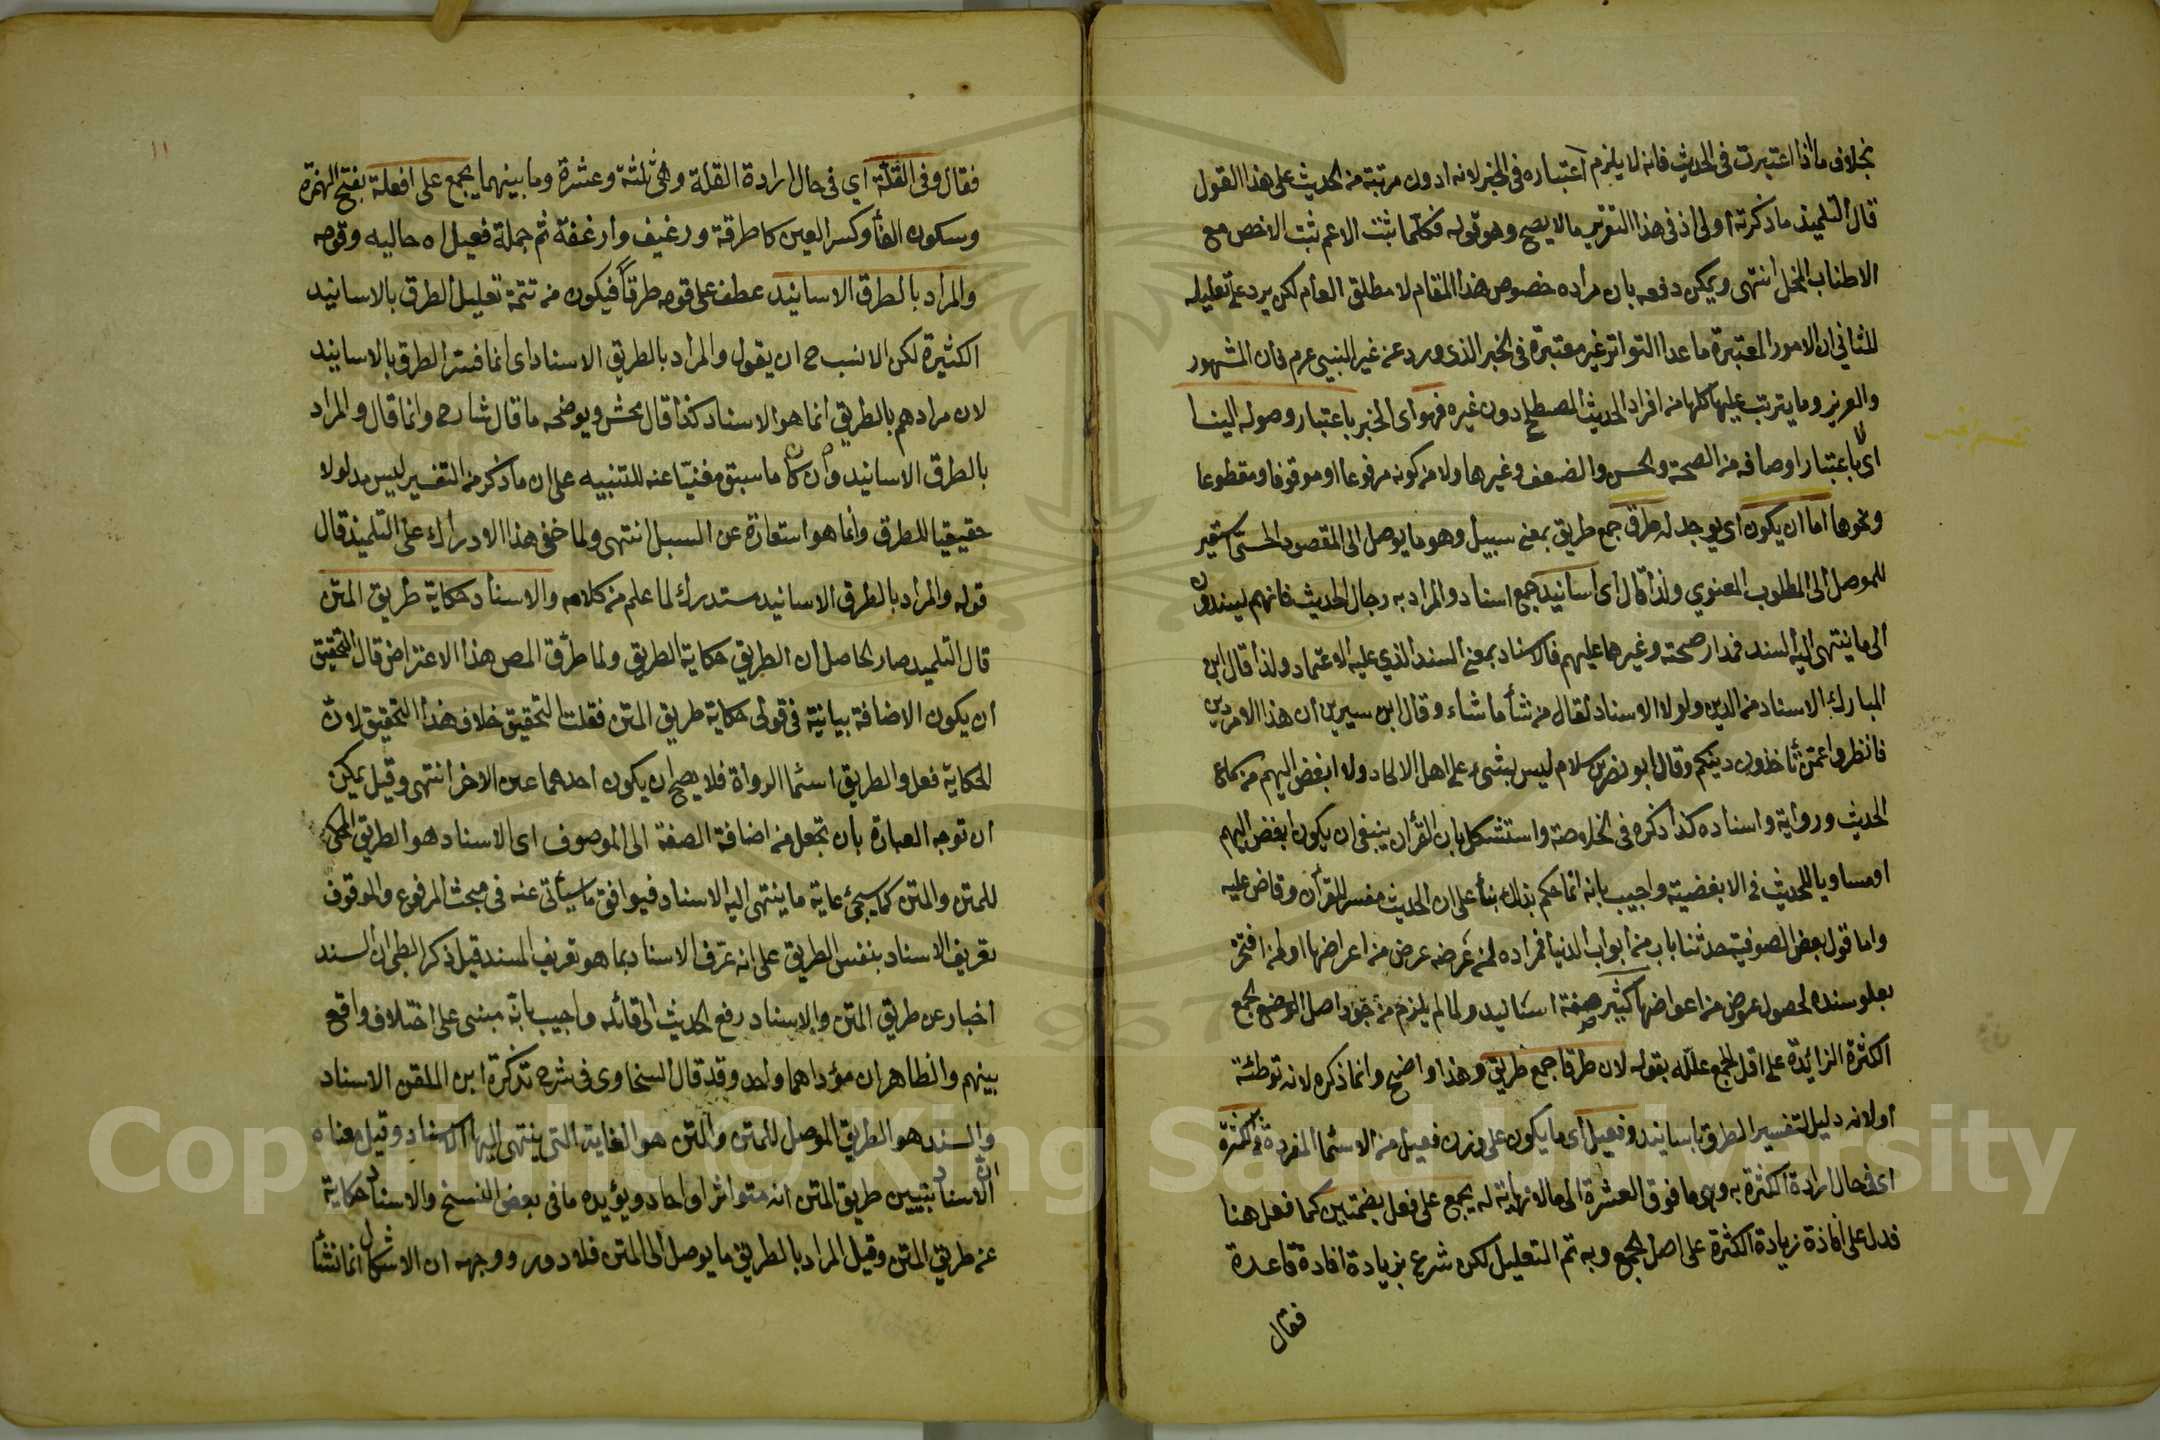 بخلاف ما اذا اعتبرت في الحديث فانه لا يلزم اعتباره في الخبر لانه ادون مرتبة من الحديث على هذا القول
قال التلميذ ما ذكرته اولى اذ في هذا التقرير ما لا يصح وهو قوله فكلما ثبت الاعم ثبت الاخص مع
الاطناب المخل انتهى ويمكن دفعه بان مراده خصوص هذا المقام لا مطلق العام لكن يرد على تعليله
للثاني ان الامور المعتبرة ما عدا التواتر غير معتبرة في الخبر الذي ورد عن غير النبي عرم فان المشهور
والعزيز وما يترتب عليها كلها من افراد الحديث المصطلح دون غيره فهو اى الخبر باعتبار وصوله الينا
اى لا باعتبار اوصافه من الصحة والحسن والضعف وغيرها ولا من كونه مرفوعا او موقوفا ومقطوعا
ونحوها اما ان يكون اى يوجد له طرق جمع طريق بمعنى سبيل وهو ما يوصل الى المقصود الحسي استعير
للموصل الى المطلوب المعنوي ولذا قال اى اسانيد جمع اسناد والمراد به رجال الحديث فانهم يسندون
الى ما ينتهى اليه السند فمدار صحته وغيرها عليهم فالاسناد بمعنى السند الذي عليه الاعتماد ولذا قال ابن
المبارك الاسناد من الدين ولولا الاسناد لقال من شأ ما شاء وقال ابن سيرين ان هذا الامر دين
فانظروا عمن تأخذون دينكم وقال ابو نصر بن سلام ليس بشىء على اهل الالحاد ولا ابغض اليهم من سماع
الحديث ورواية واسناده كذا ذكره في الخلاصة واستشكل بان القرأن ينبغى ان يكون ابغض اليهم
او مساويا للحديث في الابغضية واجيب بانه انما حكم بذلك بنأ على ان الحديث مفسر للقرأن وقاض عليه
واما قول بعض الصوفية حدثنا باب من ابواب الدنيا فمراده لمن غرضه عرض من اعراضها او لمن افتخر
بعلو سنده لحصول عوض من اعواضها كثيرة صفة اسانيد ولما لم يلزم من اصل الوضع لجمع
الكثرة الزائدة على اقل الجمع علله بقوله لان طرقا جمع طريق وهذا واضح وانما ذكره لانه توطئة
اولانه دليل لتفسير الطرق باسانيد وفعيل اى ما يكون على وزن فعيل من الاسمأ المفردة في الكثرة
اى في حال ارادة الكثرة به وهي ما فوق العشرة الى ما لا نهاية له يجمع على فعل بضمتين كما فعل هنا
فدل على افادة زيادة الكثرة على اصل الجمع وبه تم التعليل لكن شرع بزيادة افادة قاعدة
فقال
١١
فقال وفي القلة اي في حال ارادة القلة وهي ثلثة وعشرة وما بينهما يجمع على افعلة بفتح الهمزة
وسكون الفأ وكسر العين كاطرقة ورغيف وارغفة ثم جملة فعيل اه حاليه وقوله
والمراد بالطرق الاسانيد عطف على قوله طرقاً فيكون من تتمة تعليل الطرق بالاسانيد
الكثيرة لكن الانسب ح ان يقول والمراد بالطريق الاسناد اى انما فسر الطرق بالاسانيد
لان مرادهم بالطريق انما هو الاسناد كذا قال محش ويوضحه ما قال شارح وانما قال والمراد
بالطرق الاسانيد وان كان ما سبق مغنيا عنه للتنبيه على ان ما ذكر من التفسير ليس مدلولا
حقيقيا للطرق وانما هو استعارة عن السبل انتهى ولما خفى هذا الادراك على التلميذ قال
قوله والمراد بالطرق الاسانيد مستدرك لما علم من كلامه والاسناد حكاية طريق المتن
قال التلميد صار الحاصل ان الطريق حكاية الطريق ولما طرق المص هذا الاعتراض قال التحقيق
ان يكون الاضافة بيانية في قولى حكاية طريق المتن فقلت التحقيق خلاف هذا التحقيق لان
الحكاية فعل والطريق اسمأ الرواة فلا يصح ان يكون احدهما عين الاخر انتهى وقيل يمكن
ان توجه العبارة بان تجعل من اضافة الصفة الى الموصوف اى الاسناد هو الطريق المحكى
للمتن والمتن كما سيجئ غاية ما ينتهى اليه الاسناد فيوافق ما سيأتى عنه في مبحث المرفوع والموقوف
تعريف الاسناد بنفس الطريق على انه عرف الاسناد بما هو تعريف المسند قيل ذكر الطيبى ان السند
اخبار عن طريق المتن والاسناد رفع الحديث الى قائله واجيب بانه مبنى على اختلاف واقع
بينهم والظاهر ان مؤداهما واحد وقد قال السخاوى في شرح تذكرة ابن الملقن الاسناد
والسند هو الطريق الموصل للمتن والمتن هو الغاية التى ينتهى اليها الاسناد وقيل معناه
ان الاسناد تبيين طريق المتن انه متواتر او احاد ويؤيده ما فى بعض النسخ والاسناد حكاية
عن طريق المتن وقيل المراد بالطريق ما يوصل الى المتن فلا دور ووجهه ان الاشكال انما نشأ
Copyright © King Saud University
1957